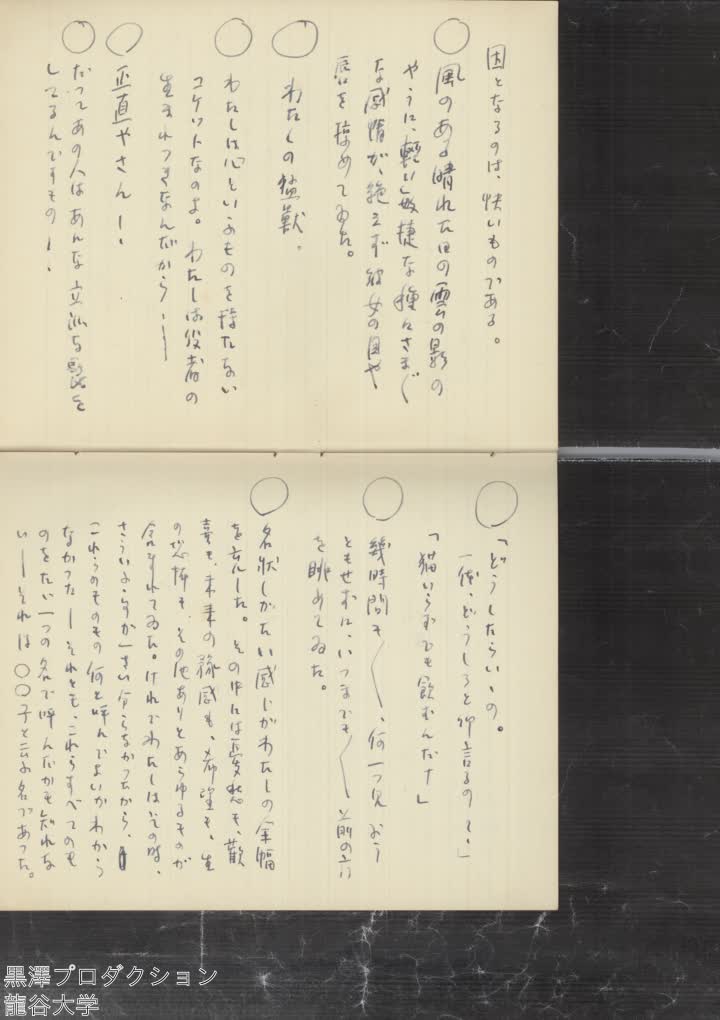 因となるのは、快いものである。
○風のある晴れた日の雲の影の
やうに、軽い敏捷な種々さまざま
な感情が、絶えず彼女の目や
唇を掠めてゐた。
○わたしの猛獣。
○わたしは心といふものを持たない
コケットなのよ。わたしは役者の
生まれつきなんだから、――
○正直やさん!
○だってあの人はあんな立派な髭を
してるんですもの!
○「どうしたらいゝの。
一体、どうしろと仰言るの!」
「猫いらずでも飲むんだナ」
○幾時間も〱、何一つ見おう
ともせずに、いつまでも〱
を眺めてゐた。
○名状しがたい感じがわたしの全幅
を充した。その中には憂愁も、歓
喜も、未来の豫感も、希望も、生
の恐怖も、その他ありとあらゆるものが
含まれてゐた。けれどわたしはその時、
さういふ
これらのものを何と呼んでよいかわから
なかった――それとも、これらすべてのも
のをたゞ一つの名で呼んだかも知れな
い――それは〇〇子と云ふ名であった。
黒澤プロダクション
龍谷大学